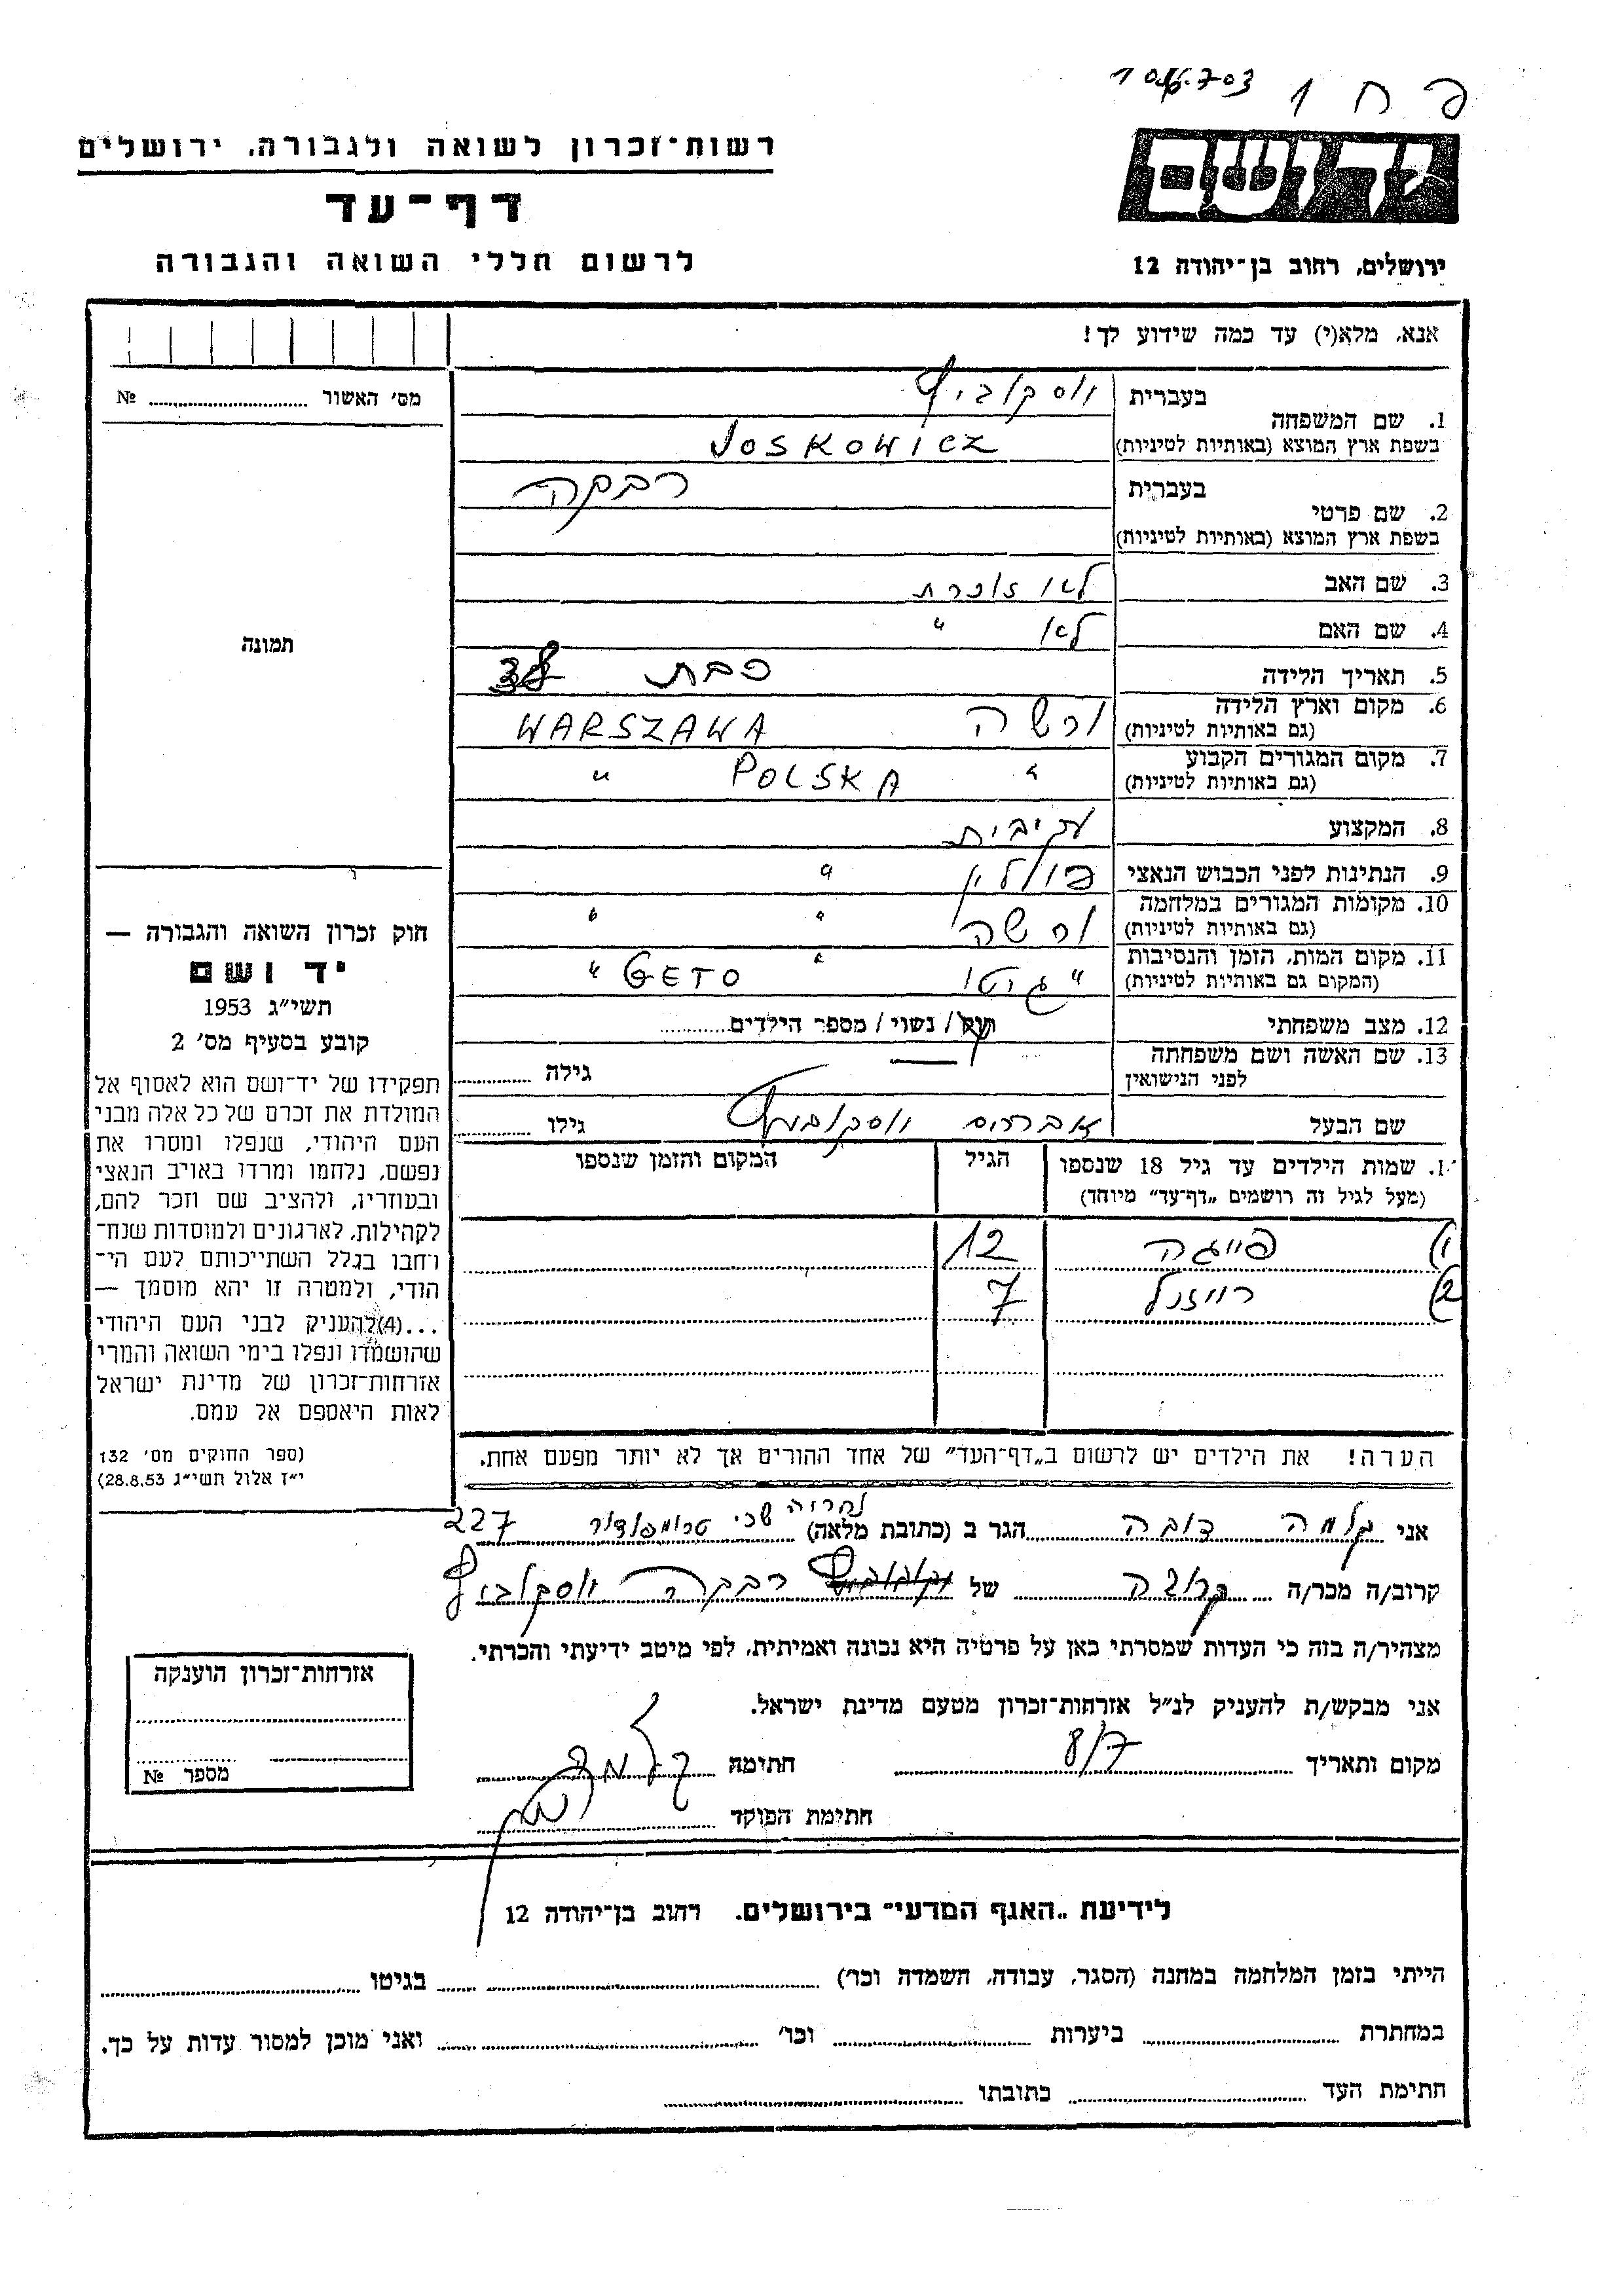 פ ח 1
רשות־זכרון לשואה ולגבורה, ירושלים
ידושם
דף־עד
לרשום חללי השואה והגבורה
ירושלים, רחוב בן־יהודה 12
אנא, מלא(י) עד כמה שידוע לך!
מס׳ האשור № ........
1. שם המשפחה
בעברית יוסקוביץ
בשפת ארץ המוצא (באותיות לטיניות) JOSKOWICZ
2. שם פרטי
בעברית רבקה
בשפת ארץ המוצא (באותיות לטיניות)
3. שם האב לא זוכרת
4. שם האם לא "
תמונה
5. תאריך הלידה כבת
6. מקום וארץ הלידה (גם באותיות לטיניות) ורשה WARSZAWA
7. מקום המגורים הקבוע (גם באותיות לטיניות) " POLSKA "
8. המקצוע
9. הנתינות לפני הכבוש הנאצי פולין "
10. מקומות המגורים במלחמה (גם באותיות לטיניות) ורשה " "
11. מקום המות, הזמן והנסיבות (המקום גם באותיות לטיניות) "גיטו " GETO "
12. מצב משפחתי רווק / נשוי / מספר הילדים........
13. שם האשה ושם משפחתה לפני הנישואין — גילה ........
שם הבעל אברהם יוסקוביץ גילו ........
חוק זכרון השואה והגבורה —
יד ושם
תשי״ג 1953
קובע בסעיף מס׳ 2
תפקידו של יד־ושם הוא לאסוף אל
המולדת את זכרם של כל אלה מבני
העם היהודי, שנפלו ומסרו את
נפשם, נלחמו ומרדו באויב הנאצי
ובעוזריו, ולהציב שם וזכר להם,
לקהילות, לארגונים ולמוסדות שנח־
רחבו בגלל השתייכותם לעם הי־
הודי, ולמטרה זו יהא מוסמך —
...(4)להעניק לבני העם היהודי
שהושמדו ונפלו בימי השואה והמרי
אזרחות־זכרון של מדינת ישראל
לאות היאספם אל עמם.
(ספר החוקים מס׳ 132
י״ז אלול תשי״ג 28.8.53)
1. שמות הילדים עד גיל 18 שנספו הגיל המקום והזמן שנספו
(מעל לגיל זה רושמים „דף־עד״ מיוחד)
1) פייגה 12
2) רייזל 7
הערה! את הילדים יש לרשום ב„דף־העד״ של אחד ההורים אך לא יותר מפעם אחת.
אני קלמה דובה הגר ב (כתובת מלאה) נהריה שכ׳ טרומפלדור 227
קרוב/ה מכר/ה קרובה של רבקה יוסקוביץ
מצהיר/ה בזה כי העדות שמסרתי כאן על פרטיה היא נכונה ואמיתית, לפי מיטב ידיעתי והכרתי.
אני מבקש/ת להעניק לנ״ל אזרחות־זכרון מטעם מדינת ישראל.
מקום ותאריך 8/7 חתימה קלמה
חתימת הפוקד
אזרחות־זכרון הוענקה
מספר №
לידיעת „האגף המדעי״ בירושלים, רחוב בן־יהודה 12
הייתי בזמן המלחמה במחנה (הסגר, עבודה, השמדה וכו׳) ........ בגיטו ........
במחתרת ........ ביערות ........ וכו׳ ........ ואני מוכן למסור עדות על כך.
חתימת העד ........ כתובתו ........